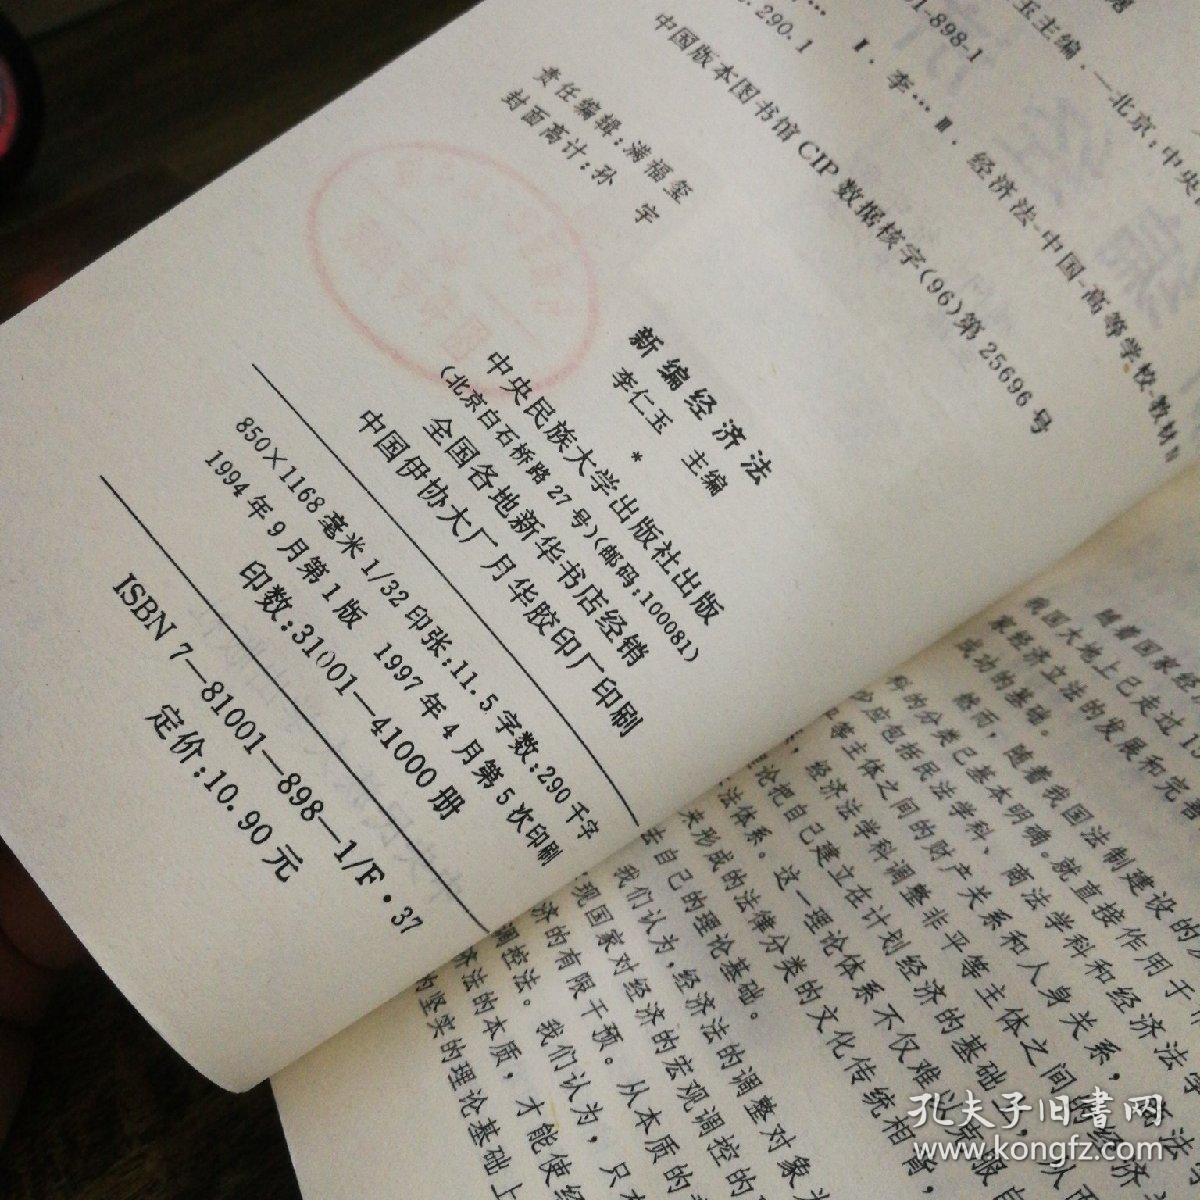 玉主编．—北京：中央
81-898-1
Ⅰ．李…Ⅲ．经济法-中国-高等学校-教材Ⅳ
.290.1
中国版本图书馆 CIP 数据核字(96)第 25696 号
责任编辑：满福玺
封面高计：孙　宇
新编经济法
李仁玉　主编
*
中央民族大学出版社出版
(北京白石桥路 27 号)(邮码：100081)
全国各地新华书店经销
中国伊协大厂月华胶印厂印刷
850×1168毫米 1/32 印张：11.5 字数：290 千字
1994 年 9 月第 1 版　1997 年 4 月第 5 次印刷
印数：31001—41000 册
ISBN 7—81001—898—1/F·37
定价：10.90 元
随着国家经
我国大地上已走过1
家经济立法的发展和完善
成功的基础。
然而，随着我国法制建设的
科的分类已基本明确。就直接作用于
应包括民法学科、商法学科和经济法学
等主体之间的财产关系和人身关系，商法
经济法学科调整非平等主体之间的经济
论把自己建立在计划经济的基础上，从而
法体系。这一理论体系不仅难以说服
未形成的法律分类的文化传统相背，
去自己的理论基础。
我们认为，经济法的调整对象为
现国家对经济的宏观调控的
济的有限干预。从本质
调控法。我们认为，只
济法的本质，才能使经
的坚实的理论基础上
孔夫子旧书网
www.kongfz.com